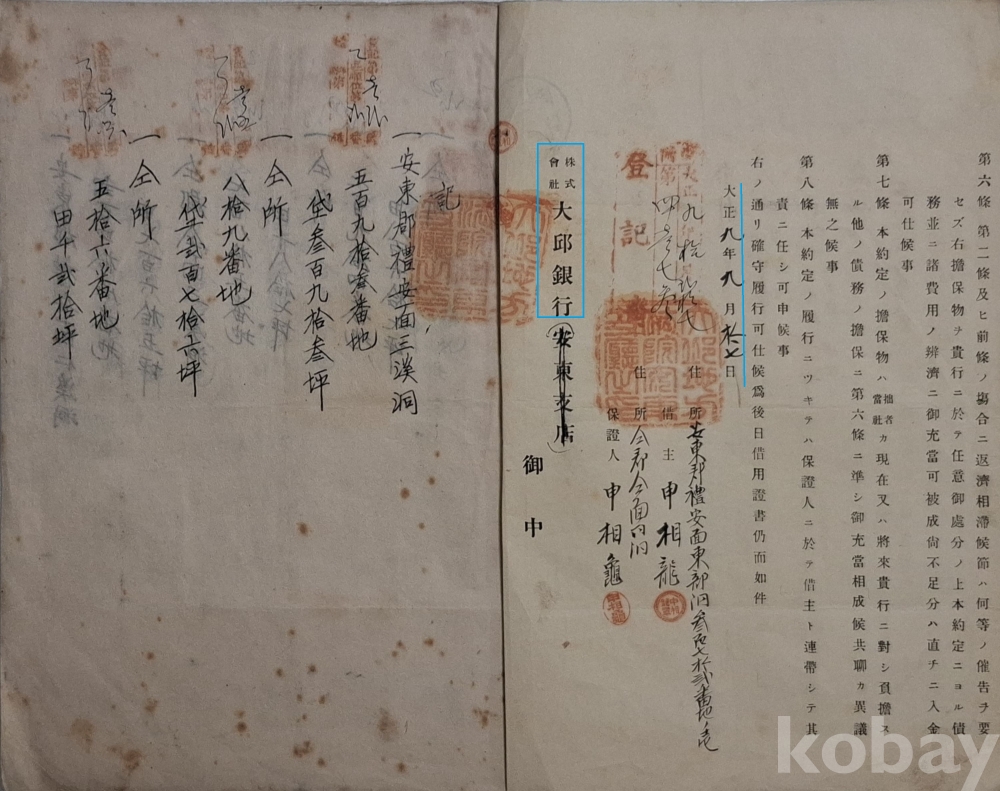 第六條 第二條及ヒ前條ノ場合ニ返濟相滯候節ハ何等ノ催告ヲ要
セズ右擔保物ヲ貴行ニ於テ任意御處分ノ上本約定ニヨル債
務並ニ諸費用ノ辨濟ニ御充當可被成尙不足分ハ直チニ入金
可仕候事
第七條 本約定ノ擔保物ハ拙者當社カ現在又ハ將來貴行ニ對シ負擔ス
ル他ノ債務ノ擔保ニ第六條ニ準シ御充當相成候共聊カ異議
無之候事
第八條 本約定ノ履行ニツキテハ保證人ニ於テ借主ト連帶シテ其
責ニ任シ可申候事
右ノ通リ確守履行可仕候爲後日借用證書仍而如件
大正九年九月拾七日
住所 安東郡禮安面東部洞
借主 申相龍
住所 仝郡仝面
保證人 申相龜
登記
株式會社大邱銀行(安東支店)御中
記
一 安東郡禮安面三溪洞
五百九拾叁番地
垈叁百九拾叁坪
一 仝所
八拾九番地
垈貳百七拾六坪
一 仝所
五拾六番地
田千貳拾坪
kobay